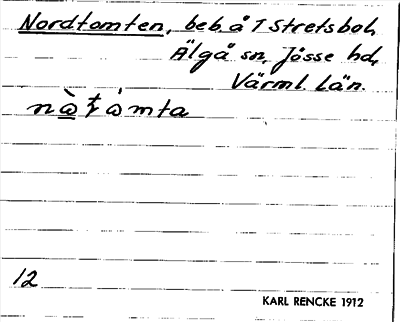 Nordtomten, beb. å T Stretsbol,
Älgå sn, Jösse hd,
Värml. län.
12
KARL RENCKE 1912